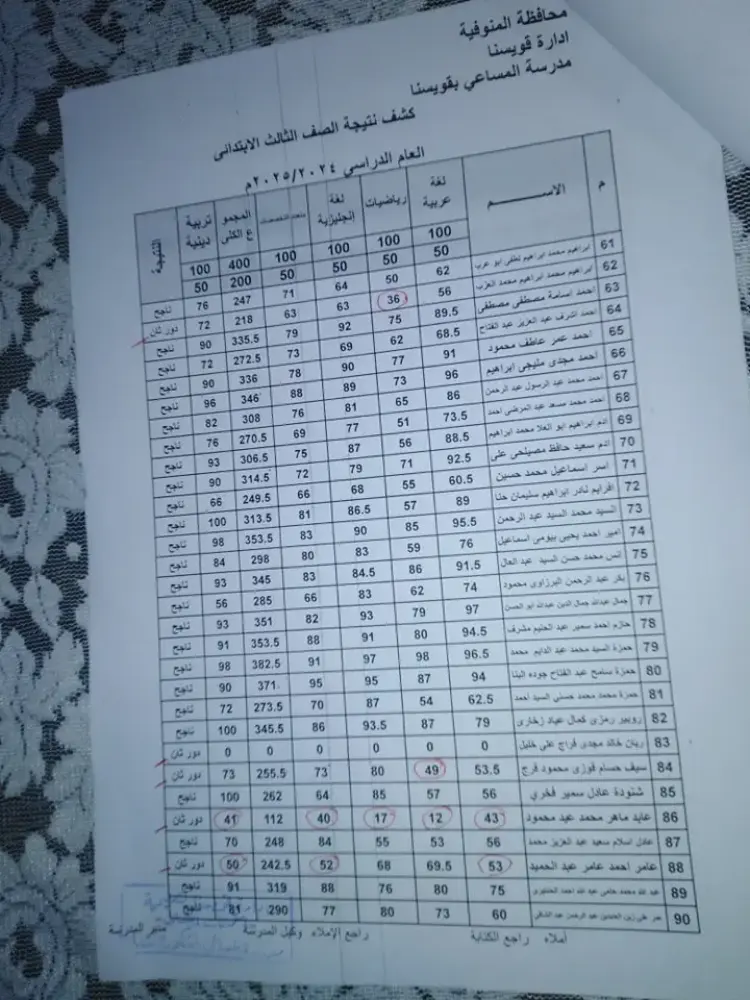 محافظة المنوفية
ادارة قويسنا
مدرسة المساعي بقويسنا
كشف نتيجة الصف الثالث الابتدائى
العام الدراسي ٢٠٢٥/٢٠٢٤م
م الاســـــم لغة عربية رياضيات لغة انجليزية متعدد التخصصات المجموع الكلى تربية دينية النتيجة
100 100 100 100 400 100
50 50 50 50 200 50
61 ابراهيم محمد ابراهيم لطفى ابو عرب 62 50 64 71 247 76 ناجح
62 ابراهيم محمد ابراهيم محمد العزب 56 36 63 63 218 72 دور ثان
63 احمد اسامة مصطفى مصطفى 89.5 75 92 79 335.5 90 ناجح
64 احمد اشرف عبد العزيز عبد الفتاح 68.5 62 69 73 272.5 72 ناجح
65 احمد عمر عاطف محمود 91 77 90 78 336 90 ناجح
66 احمد مجدى مليجى ابراهيم 96 73 89 88 346 96 ناجح
67 احمد محمد عبد الرسول عبد الرحمن 86 65 81 76 308 82 ناجح
68 احمد محمد مسعد عبد المرضى احمد 73.5 51 77 69 270.5 76 ناجح
69 ادم ابراهيم ابو العلا محمد ابراهيم 88.5 56 87 75 306.5 93 ناجح
70 ادم سعيد حافظ مصيلحى على 92.5 71 79 72 314.5 90 ناجح
71 اسر اسماعيل محمد حسين 60.5 55 68 66 249.5 66 ناجح
72 افرايم نادر ابراهيم سليمان حنا 89 57 86.5 81 313.5 100 ناجح
73 السيد محمد السيد عبد الرحمن 95.5 85 90 83 353.5 98 ناجح
74 امير احمد يحيى بيومى اسماعيل 76 59 83 80 298 84 ناجح
75 انس محمد حسن السيد عبد العال 91.5 86 84.5 83 345 93 ناجح
76 بكر عبد الرحمن البرزاوى محمود 74 62 83 66 285 56 ناجح
77 جمال عبدالله جمال الدين عبدالله ابو الحسن 97 79 93 82 351 93 ناجح
78 حازم احمد سمير عبد الحليم مشرف 94.5 80 91 88 353.5 91 ناجح
79 حمزة السيد محمد عبد الدايم محمد 96.5 98 97 91 382.5 98 ناجح
80 حمزة سامح عبد الفتاح جوده البنا 94 87 95 95 371 90 ناجح
81 حمزة محمد محمد حسنى السيد احمد 62.5 54 87 70 273.5 72 ناجح
82 روبير رمزى كمال عياد زخارى 79 87 93.5 86 345.5 100 ناجح
83 ريان خالد مجدى فراج على خليل 0 0 0 0 0 0 دور ثان
84 سيف حسام فوزى محمود فرج 53.5 49 80 73 255.5 73 دور ثان
85 شنودة عادل سمير فخري 56 57 85 64 262 100 ناجح
86 عابد ماهر محمد عبد محمود 43 12 17 40 112 41 دور ثان
87 عادل اسلام سعيد عبد العزيز محمد 56 53 55 84 248 70 ناجح
88 عامر احمد عامر عبد الحميد 53 69.5 68 52 242.5 50 دور ثان
89 عبد الله محمد حلمى عبد الله احمد 75 80 76 88 319 91 ناجح
90 عمر على زين العابدين عبد الرحمن عبد 60 73 80 77 290 81 ناجح
أملاه راجع الكتابة راجع الإملاء وكيل المدرسة مدير المدرسة